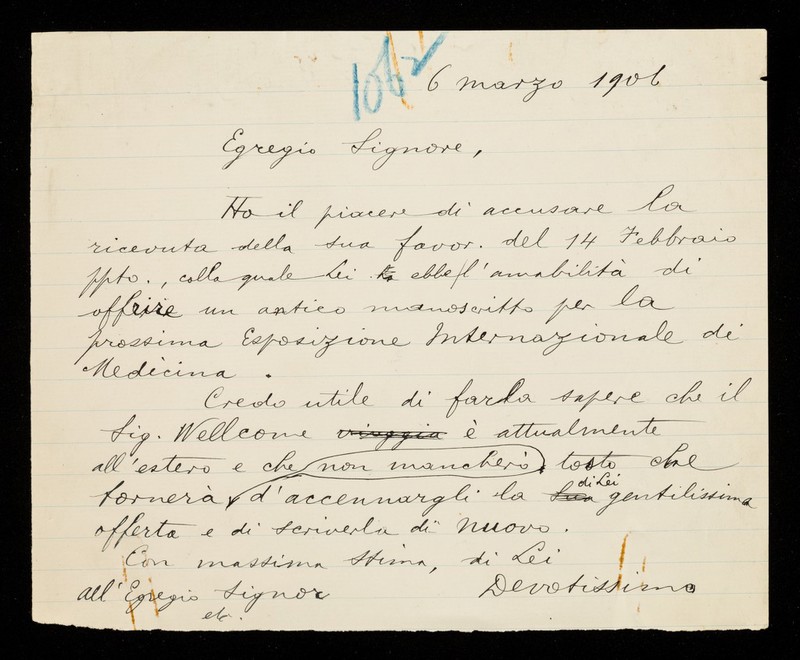 1062
6 marzo 1906
Egregio Signore,
Ho il piacere di accusare la
ricevuta della sua favor. del 14 Febbraio
ppto., colla quale Lei ebbe l'amabilità di
offrire un antico manoscritto per la
prossima Esposizione Internazionale di
Medicina.
Credo utile di farla sapere che il
Sig. Wellcome viaggia è attualmente
all'estero e che non mancherò, tosto che
tornerà, d'accennargli la Sua di Lei gentilissima
offerta e di scriverla di nuovo.
Con massima stima, di Lei
all'Egregio Signor Devotissimo
etc.